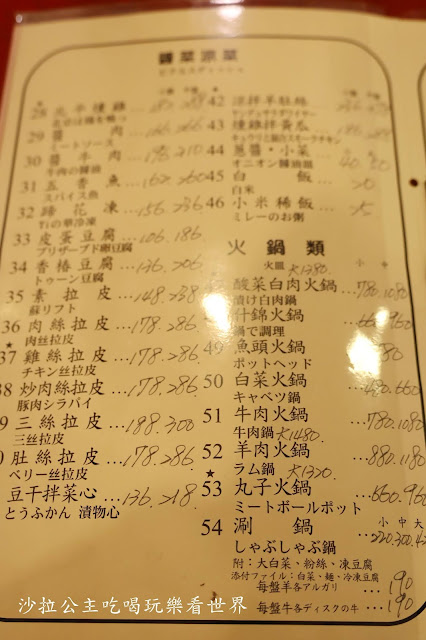 醬菜涼菜
ピクルスディーシュ
28 北平燻雞
29 醬肉 ...166.266
ミートソース
30 醬牛肉 ...178.210
牛肉の醤油
31 五香魚 ...162.260
スパイス魚
32 蹄花凍 ...156.236
Yiの華冷凍
33 皮蛋豆腐 ...106.186
プリザーブド卵豆腐
34 香椿豆腐 ...136.206
トゥーン豆腐
35 素拉皮 ...148.238
蘇リフト
36 肉絲拉皮 ...178.286
★ 肉丝拉皮
37 雞絲拉皮 ...178.286
チキン丝拉皮
38 炒肉絲拉皮 ...178.286
豚肉シラパイ
9 三絲拉皮 ...188.300
三丝拉皮
0 肚絲拉皮 ...178.286
ベリー丝拉皮
豆干拌菜心 ...136.218
とうふかん 漬物心
42 涼拌羊肚絲
43 燻雞拌黃瓜
44 蔥醬·小菜
45 白飯
白米
46 小米稀飯
ミレーのお粥
火鍋類
大1380 小 中
酸菜白肉火鍋 ...780.1080
漬け白肉鍋
什錦火鍋 ...660.960
鍋で調理
49 魚頭火鍋
ポットヘッド
50 白菜火鍋 ...480.660
キャベツ鍋
51 牛肉火鍋 ...780.1080
牛肉鍋 大1480
52 羊肉火鍋 ...880.1180
★ ラム鍋 大1320
53 丸子火鍋 ...660.960
ミートボールポット
小 中 大
54 涮鍋 ...220.300.42
しゃぶしゃぶ鍋
附：大白菜、粉絲、凍豆腐
添付ファイル：白菜、麺、冷凍豆腐
每盤羊各アルガリ ...190
每盤牛各ディスクの牛 ...190
沙拉公主吃喝玩樂看世界